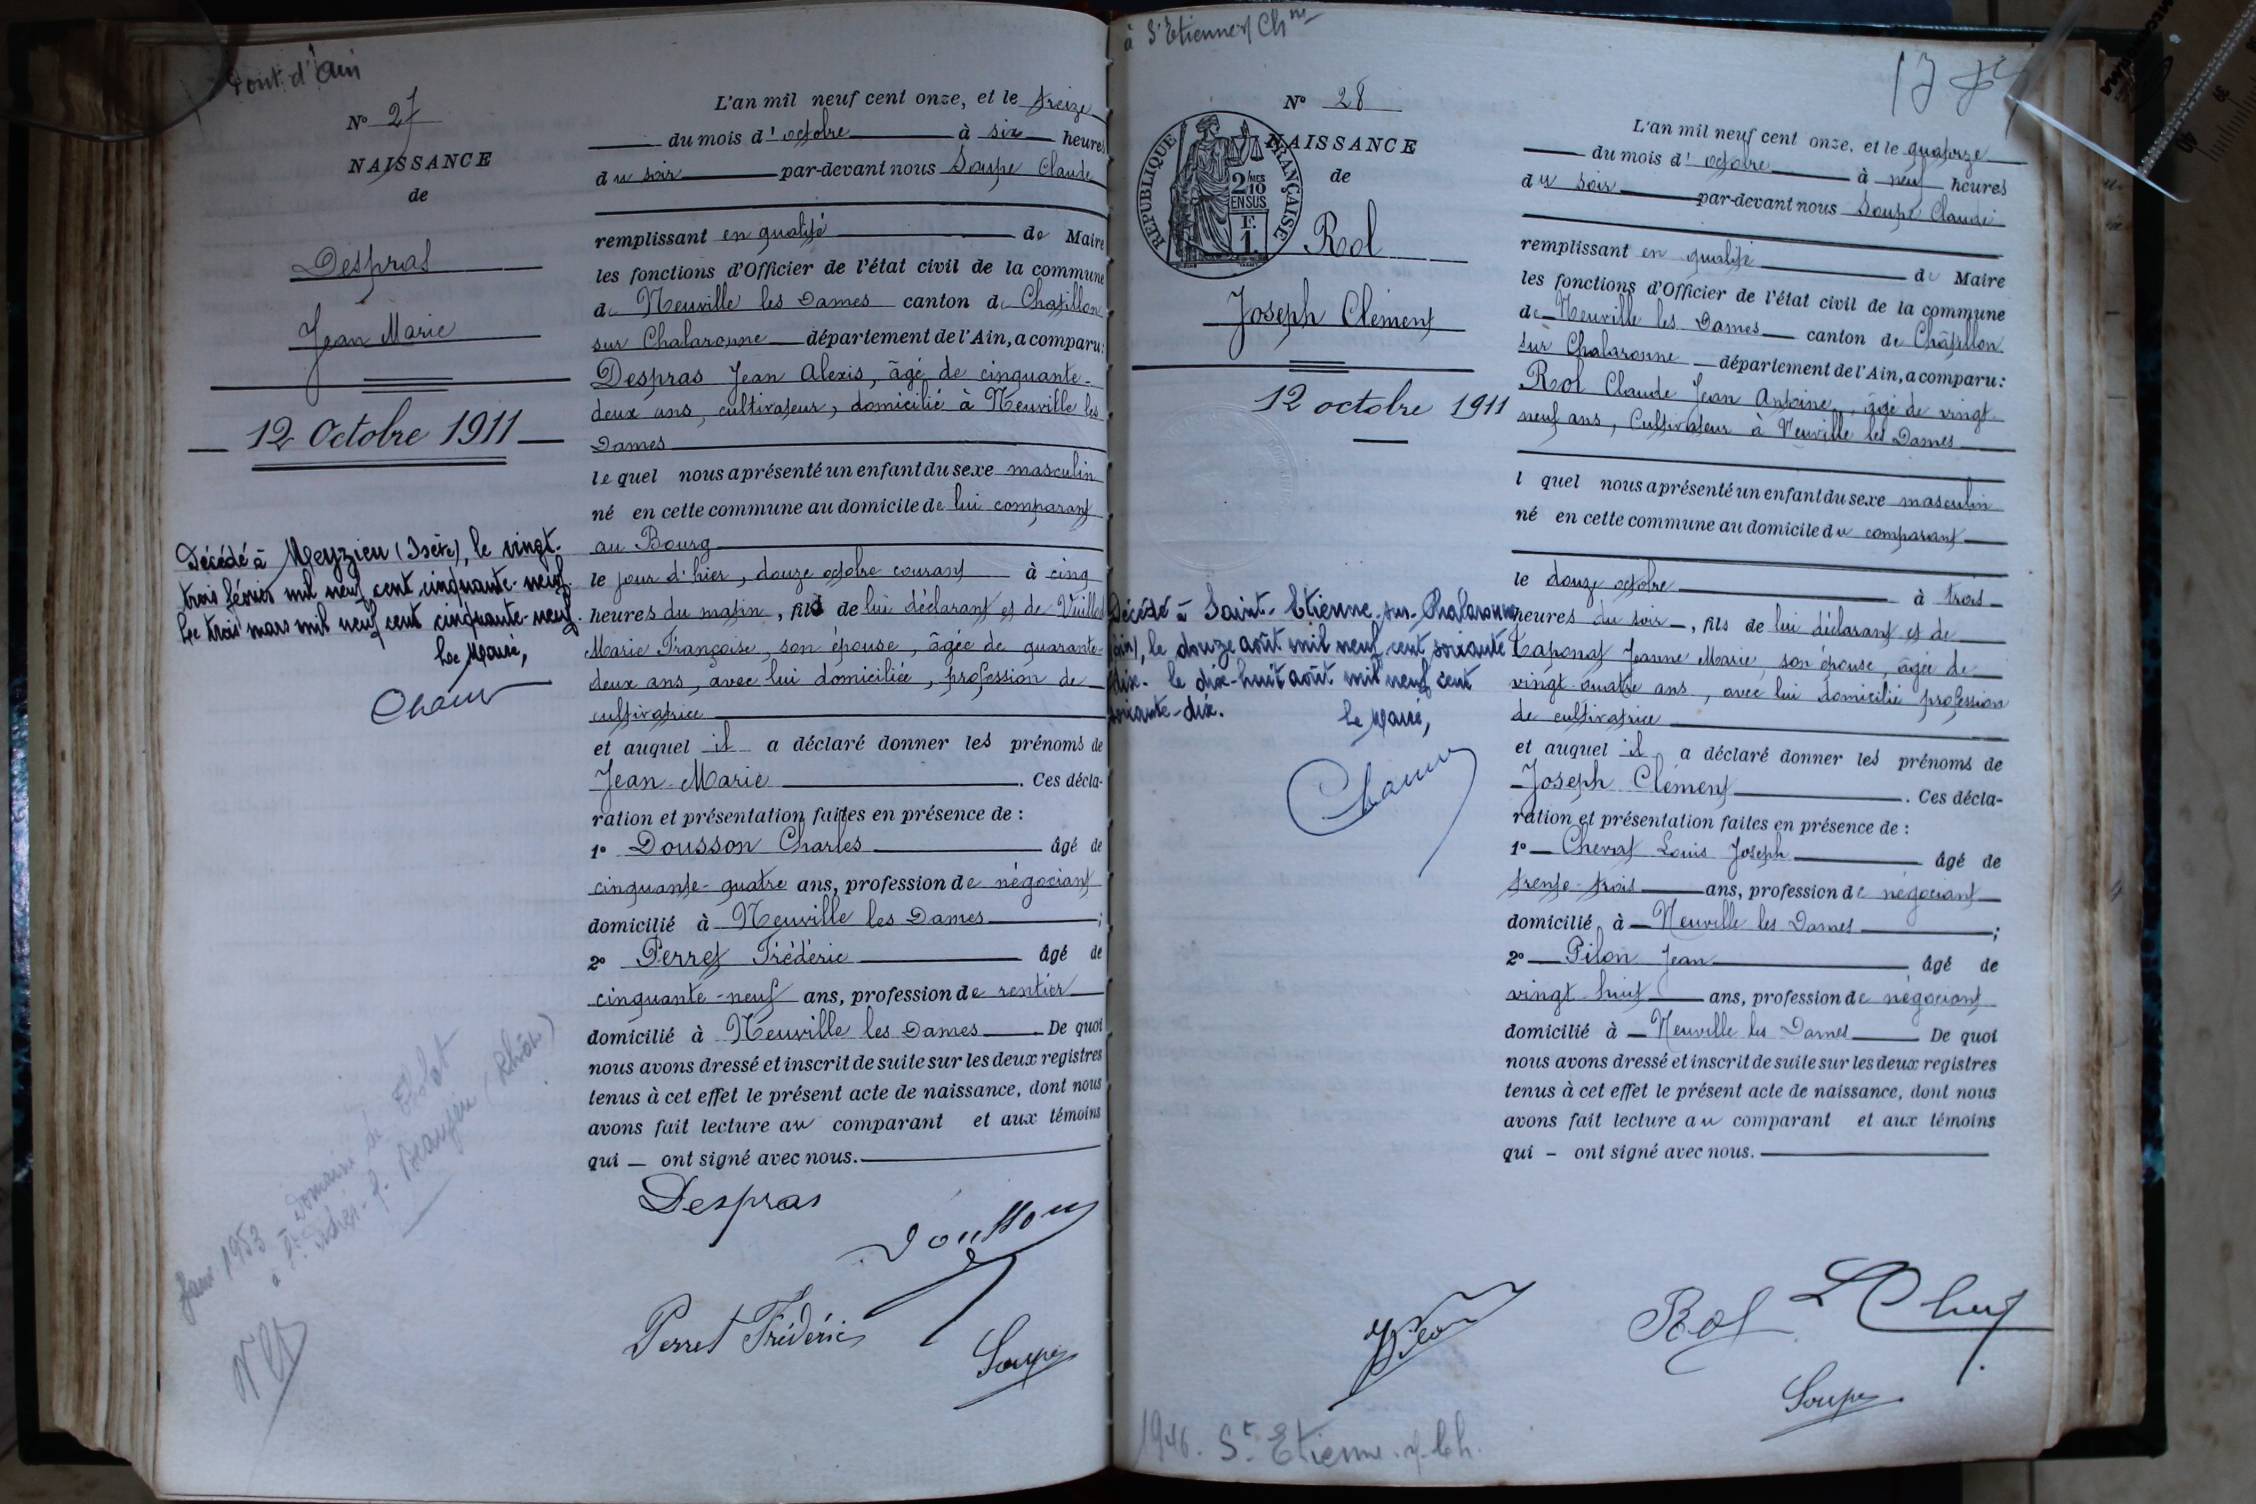 Pont d'Ain
N° 27
NAISSANCE
de
Despras
Jean Marie
12 Octobre 1911
Décédé à Meyzieu (Isère), le vingt-
trois février mil neuf cent cinquante-neuf.
Le trois mars mil neuf cent cinquante-neuf.
Le Maire,
Janv 1953 - Domaine de
à St. Didier-s-Beaujeu (Rhône)
L'an mil neuf cent onze, et le treize
du mois d'octobre à six heures
du soir par-devant nous Soupe Claude
remplissant en qualité de Maire
les fonctions d'Officier de l'état civil de la commune
de Neuville les Dames canton de Chatillon
sur Chalaronne département de l'Ain, a comparu:
Despras Jean Alexis, âgé de cinquante-
deux ans, cultivateur, domicilié à Neuville les
Dames
lequel nous a présenté un enfant du sexe masculin
né en cette commune au domicile de lui comparant
au Bourg
le jour d'hier, douze octobre courant à cinq
heures du matin, fils de lui déclarant et de Vuillod
Marie Françoise, son épouse, âgée de quarante-
deux ans, avec lui domiciliée, profession de
cultivatrice
et auquel il a déclaré donner les prénoms de
Jean-Marie. Ces décla-
ration et présentation faites en présence de :
1° Dousson Charles âgé de
cinquante-quatre ans, profession de négociant
domicilié à Neuville les Dames ;
2° Perret Frédéric âgé de
cinquante-neuf ans, profession de rentier
domicilié à Neuville les Dames De quoi
nous avons dressé et inscrit de suite sur les deux registres
tenus à cet effet le présent acte de naissance, dont nous
avons fait lecture au comparant et aux témoins
qui — ont signé avec nous.
Despras
Dousson
Perret Frédéric
Soupe
à St Etienne s/ Chne
N° 28
NAISSANCE
de
RÉPUBLIQUE FRANÇAISE
2/10 MES
EN SUS
F.
1.
Rol
Joseph Clément
12 octobre 1911
Décédé à Saint-Etienne-sur-Chalaronne
(Ain), le douze août mil neuf cent soixante
dix. le dix-huit août mil neuf cent
soixante-dix.
Le Maire,
17
L'an mil neuf cent onze, et le quatorze
du mois d'octobre à neuf heures
du soir par-devant nous Soupe Claude
remplissant en qualité de Maire
les fonctions d'Officier de l'état civil de la commune
de Neuville les Dames canton de Châtillon
sur Chalaronne département de l'Ain, a comparu:
Rol Claude Jean Antoine, âgé de vingt-
neuf ans, Cultivateur à Neuville les Dames
l quel nous a présenté un enfant du sexe masculin
né en cette commune au domicile du comparant
le douze octobre à trois
heures du soir, fils de lui déclarant et de
Taponat Jeanne Marie, son épouse, âgée de
vingt-quatre ans, avec lui domicilié profession
de cultivatrice
et auquel il a déclaré donner les prénoms de
Joseph Clément. Ces décla-
ration et présentation faites en présence de :
1° Chevat Louis Joseph âgé de
trente-trois ans, profession de négociant
domicilié à Neuville les Dames ;
2° Pilon Jean âgé de
vingt-huit ans, profession de négociant
domicilié à Neuville les Dames De quoi
nous avons dressé et inscrit de suite sur les deux registres
tenus à cet effet le présent acte de naissance, dont nous
avons fait lecture au comparant et aux témoins
qui - ont signé avec nous.
Rol
Soupe
1946. St Etienne-s-Ch.